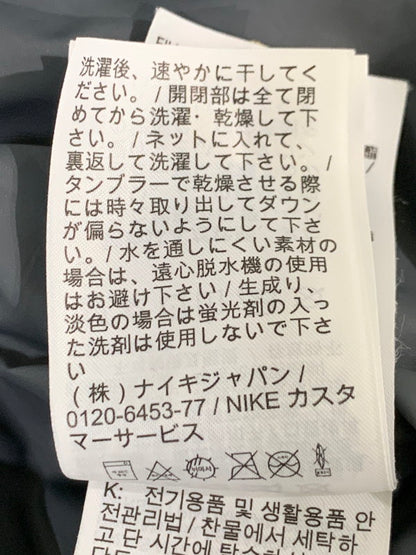 洗濯後、速やかに干してく
ださい。 / 開閉部は全て閉
めてから洗濯・ 乾燥して下
さい。 / ネットに入れて、
裏返して洗濯して下さい。 /
タンブラーで乾燥させる際
には時々取り出してダウン
が偏らないようにして下さ
い。/ 水を通しにくい素材の
場合は、遠心脱水機の使用
はお避け下さい / 生成り、
淡色の場合は蛍光剤の入っ
た洗剤は使用しないで下さ
い
(株) ナイキジャパン /
0120-6453-77 / NIKE カスタ
マーサービス
K: 전기용품 및 생활용품 안
전관리법 / 찬물에서 세탁하
고 단 시간에 탈수하